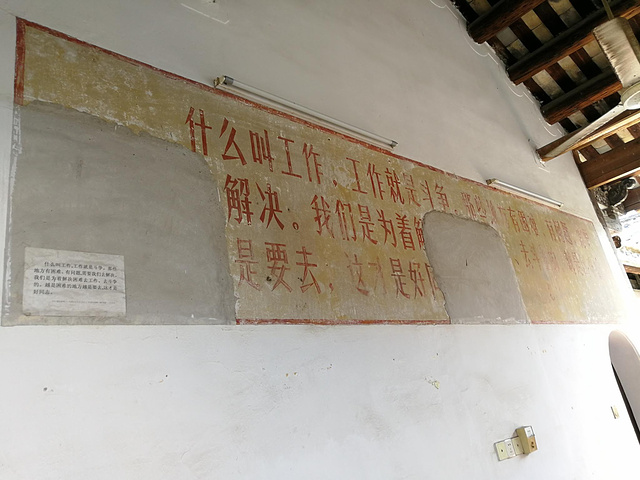 什么叫工作，工作就是斗争。那些地方有困难、有问题，需要
解决。我们是为着解
是要去，这才是好同
什么叫工作，工作就是斗争。那些
地方有困难、有问题，需要我们去解决。
我们是为着解决困难去工作、去斗争
的。越是困难的地方越是要去，这才是
好同志。